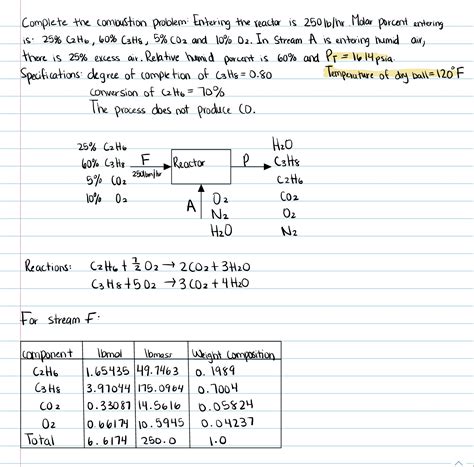 Complete the combustion problem: Entering the reactor is 250 lb/hr. Molar percent entering
is: 25% C2H6, 60% C3H8, 5% CO2 and 10% O2. In Stream A is entering humid air,
there is 25% excess air. Relative humid percent is 60% and PT = 16.14psia.
Specifications: degree of completion of C3H8 = 0.80
Temperature of dry ball = 120°F
conversion of C2H6 = 70%
The process does not produce CO.
25% C2H6
60% C3H8
5% CO2
10% O2
F
250lbm/hr
Reactor
P
H2O
C3H8
C2H6
CO2
O2
N2
A
O2
N2
H2O
Reactions: C2H6 + 7/2 O2 → 2CO2 + 3H2O
C3H8 + 5O2 → 3CO2 + 4H2O
For stream F:
component lbmol lbmass Weight Composition
C2H6 1.65435 49.7463 0.1989
C3H8 3.97044 175.0964 0.7004
CO2 0.33087 14.5616 0.05824
O2 0.66174 10.5945 0.04237
Total 6.6174 250.0 1.0